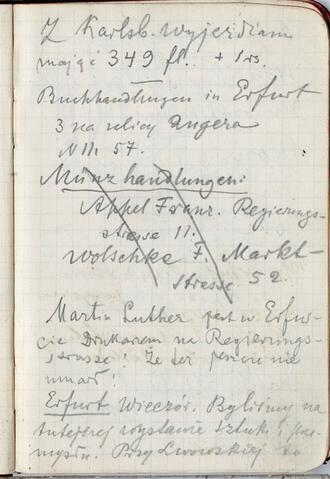 Z Karlsb. wyjeżdżam
mając 349 fl. + 1 rs.
Buchhandlungen in Erfurt
3 na ulicy Angera
N 11. 57.
Münzhandlungen:
Appel Franz. Regierungs-
strasse 11.
Wolschke F. Markt-
strasse 52.
Martin Luther jest w Erfur-
cie Drukarem na Regierungs-
strasse! Że też jeszcze nie
umarł!
Erfurt Wieczór. Byliśmy na
tutejszej wystawie sztuki i prze-
mysłu. Przy Lwowskiej to